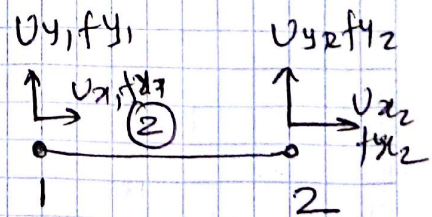 Uy₁fy₁ Uy₂fy₂
Ux,
2
Ux₂
fx₂
1 2